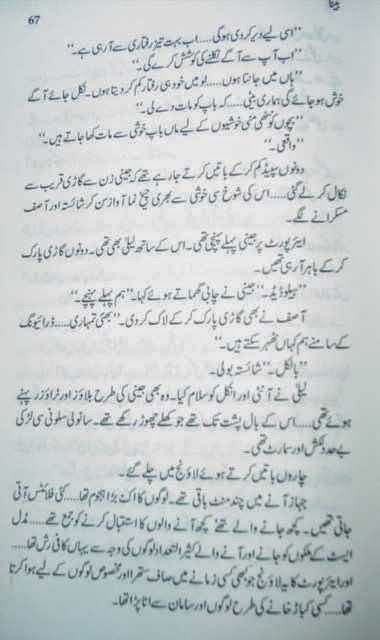 بینا
67
”اسی لیے دیر کر دی ہو گی.....اب بہت تیز رفتاری سے آ رہی ہے۔“
”اب آپ سے آگے نکلنے کی کوشش کرے گی۔“
”ہاں میں جانتا ہوں.....لو میں خود ہی رفتار کم کر دیتا ہوں۔ نکل جائے آگے
خوش ہو جائے گی ہماری بیٹی.....کہ باپ کو مات دے لی۔“
”بچوں کو ننھی منی خوشیوں کے لیے ماں باپ خوشی سے مات کھا جاتے ہیں۔“
”واقعی۔“
دونوں سپیڈ کم کر کے باتیں کرتے جا رہے تھے کہ جینی زن سے گاڑی قریب سے
نکال کر لے گئی.....اس کی شوخ سی خوشی سے بھری چیخ نما آواز سن کر شائستہ اور آصف
مسکرانے لگے۔
ایئرپورٹ پر جینی پہلے پہنچی تھی۔ اس کے ساتھ لیلیٰ بھی تھی۔ دونوں گاڑی پارک
کر کے باہر آ رہی تھیں۔
”ہیلو ڈیڈ۔“ جینی نے چابی گھماتے ہوئے کہا۔ ”ہم پہلے پہنچے۔“
آصف نے بھی گاڑی پارک کر کے لاک کر دی۔ ”بھئی تمہاری.....ڈرائیونگ
کے سامنے ہم کہاں ٹھہر سکتے ہیں۔“
”بالکل۔“ شائستہ بولی۔
لیلیٰ نے آنٹی اور انکل کو سلام کیا۔ وہ بھی جینی کی طرح بلاؤز اور ٹراؤزر پہنے
ہوئے تھی.....اس کے بال پشت تک تھے جو کھلے چھوڑ رکھے تھے۔ سانولی سلونی سی لڑکی
بے حد دلکش اور سمارٹ تھی۔
چاروں باتیں کرتے ہوئے لاؤنج میں چلے گئے۔
جہاز آنے میں چند منٹ باقی تھے۔ لوگوں کا اک بڑا ہجوم تھا.....کئی فلائٹس آتی
جاتی تھیں۔ کچھ جانے والے تھے کچھ آنے والوں کا استقبال کرنے کو جمع تھے.....مڈل
ایسٹ کے ملکوں کو جانے اور آنے والے کثیر التعداد لوگوں کی وجہ سے یہاں کافی رش تھا.....
اور ایئرپورٹ کا یہ لاؤنج جو کبھی کسی زمانے میں صاف ستھرا اور مخصوص لوگوں کے لیے ہوا کرتا
تھا.....کسی کباڑ خانے کی طرح لوگوں اور سامان سے اٹا پڑا تھا۔